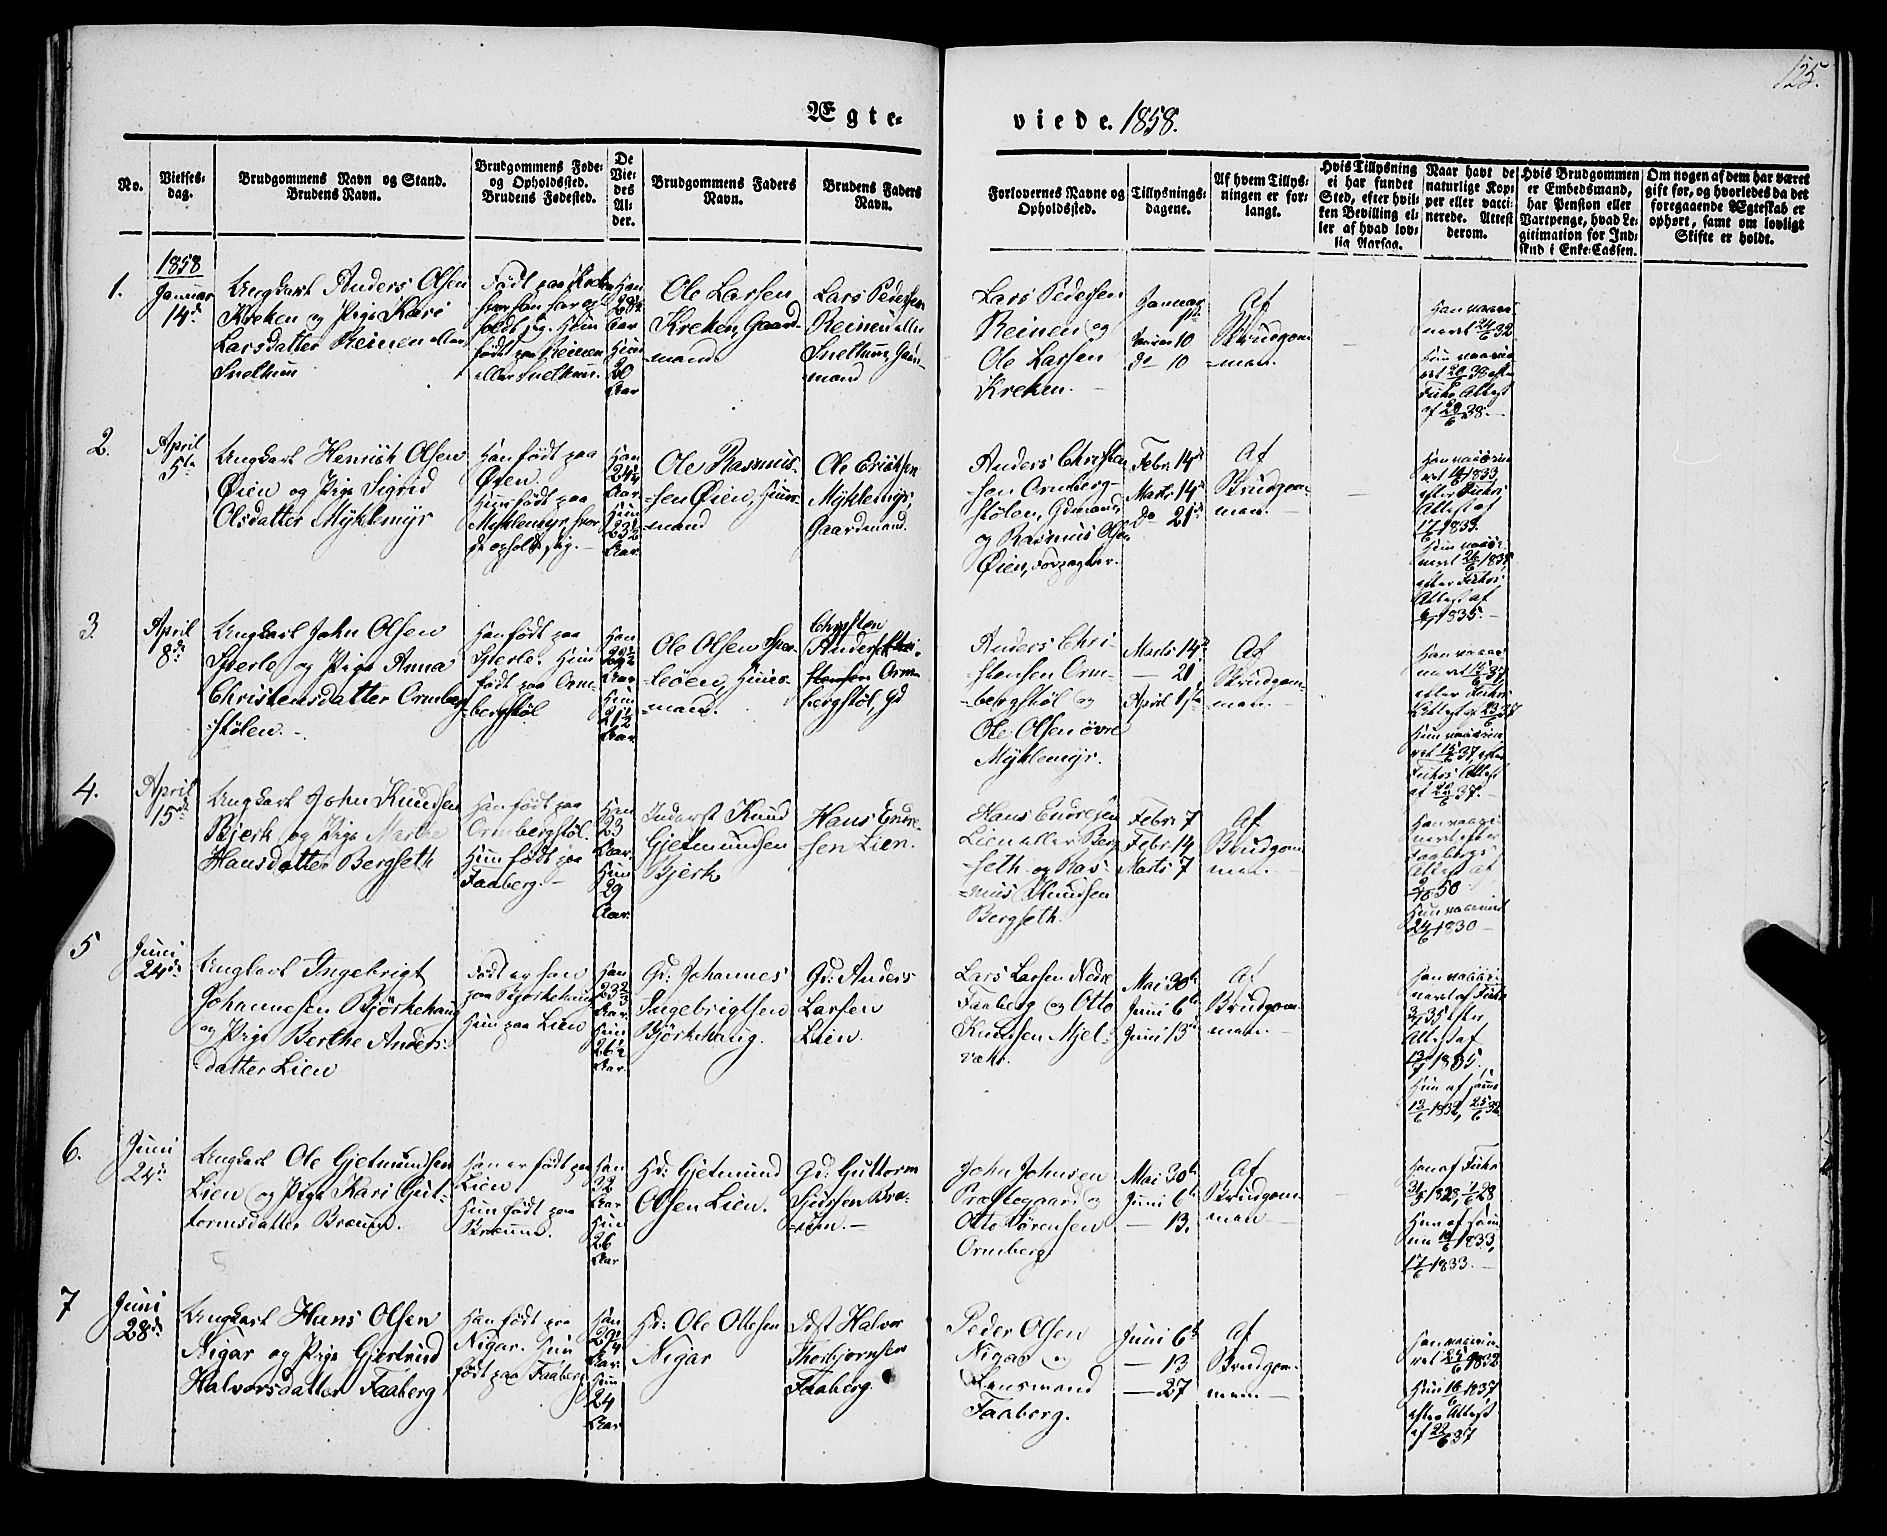 125.
Ægte-
viede. 1858.
No.
Vielses-
dag.
Brudgommens Navn og Stand.
Brudens Navn.
Brudgommens Føde-
og Opholdssted.
Brudens Fødested.
De
Vie-
des
Al-
der.
Brudgommens Faders
Navn.
Brudens Faders
Navn.
Forlovernes Navne og
Opholdssted.
Tillysnings-
dagene.
Af hvem Tillys-
ningen er for-
langt.
Hvis Tillysning
ei har fundet
Sted, efter hvil-
ken Bevilling el-
ler af hvad lov-
lig Aarsag.
Naar havt de
naturlige Kop-
per eller vacci-
nerede. Attest
derom.
Hvis Brudgommen
er Embedsmand,
har Pension eller
Vartpenge, hvad Le-
gitimation for Ind-
skud i Enke-Cassen.
Om nogen af dem har været
gift før, og hvorledes da det
foregaaende Ægteskab er
ophørt, samt om lovligt
Skifte er holdt.
1.
1858
Januar
14de
Ungkarl Anders Olsen
Kreken og Pige Kari
Larsdatter Reinen eller
Snethun
Født paa Kreken
hvor han har op-
holdt sig. Hun
født paa Reinen
eller Snethun.
Han
Aar
Hun
20
Aar
Ole Larsen
Kreken, Gaard-
mand
Lars Pedersen
Reinen eller
Snethun, Gaard-
mand
Lars Pedersen
Reinen og
Ole Larsen
Kreken.
Januar
10
do 10
Af
Brudgom-
men.
Han vacci-
neret 24/6 32
Hun vacci-
Attest
2.
April
5te
Ungkarl Henrik Olsen
Øien og Pige Sigrid
Olsdatter Myklemyr
Han født paa
Øien.
Hun født paa
Myklemyr, hvor
de opholdt sig.
Han
24 1/4
Aar.
Hun
23 1/2
Aar.
Ole Rasmus-
sen Øien, Huus-
mand
Ole Erichsen
Myklemyr,
Gaardmand.
Anders Christen-
sen Ormberg-
stølen, Gdmand,
og Rasmus Olsen
Øien, Forpagter.
Febr. 14de
Marts 14de
do 21de
Af
Brudgom-
men.
Han vaccine-
ret 1833
efter Fuhrs
Attest af
17/6 1833.
Hun vacci-
neret 26/6 1835
efter Fuhrs
Attest af
1835.
3.
April
8de
Ungkarl John Olsen
Sperle og Pige Anna
Christensdatter Ormberg-
stølen.
Han født paa
Sperle. Hun
født paa Orm-
bergstøl
Han
Aar
Hun
21 1/2
Aar.
Ole Olsen Sper-
leøen, Huus-
mand.
Christen
Anders Chri-
stensen Orm-
bergstøl, Gd
Anders Chri-
stensen Orm-
bergstøl og
Ole Olsen øvre
Myklemyr.
Marts 14de
— 21
April 1ste
Af
Brudgom-
men.
Han vacci-
neret
efter Fuhrs
Attest af
Hun vaccine-
ret efter
Fuhrs Attest
af
4.
April
15de
Ungkarl John Knudsen
Bjerk og Pige Marthe
Hansdatter Bergseth
Han født paa
Ormbergstøl.
Hun født paa
Faaberg.
Han
23
Aar.
Hun
29
Aar.
Inderst Knud
Gjetmundsen
Bjerk
Hans Endre-
sen Lien.
Hans Endresen
Lien eller Berg-
seth og Ras-
mus Knudsen
Bergseth
Febr. 7
Febr. 14
Marts 7
Af
Brudgom-
men.
Han vacci-
neret efter
Faabergs
Attest af
50
Hun vaccineret
24/6 1830
5
Juni
24de
Ungkarl Ingebrigt
Johannesen Bjørkehaug
og Pige Berthe Anders-
datter Lien
Født er han
paa Bjørkehaug
Hun paa Lien
Han
23 2/3
Aar.
Hun
26 1/2
Aar.
Gd: Johannes
Ingebrigtsen
Bjørkehaug.
Gd: Anders
Larsen
Lien.
Lars Larsen Nedre
Faaberg og Otto
Knudsen Mjel-
Mai 30te
Juni 6te
Juni 13de
Af
Brudgom-
men.
Han vacci-
neret af Fuhr
35 efter
Attest af
1835.
Hun af samme
1832, 25/6 32
6.
Juni
24de
Ungkarl Ole Gjetmundsen
Lien og Pige Kari Gut-
tormsdatter Bræum.
Han er født paa
Lien
Hun født paa
Bræum.
Han
32
Aar
Hun
26
Aar
Hd: Gjetmund
Olsen Lien.
Gd: Guttorm
Sjursen Bræ-
um.
John Johnsen
Præstegaard og
Otto Sørensen
Ormberg
Mai 30te
Juni 6te
— 13.
Af
Brudgom-
men
Han af Fuhr
1828, 28
Hun af sam-
me 1833,
17/6 1833.
7
Juni
28de
Ungkarl Hans Olsen
Nigar og Pige Gjertrud
Halvorsdatter Faaberg
Han født paa
Nigar. Hun
født paa Faaberg
Han
Aar.
Hun
24
Aar
Hd: Ole Ottesen
Nigar
Halvor
Thorbjørnsen
Faaberg.
Peder Olsen
Nigar og
Lensmand
Faaberg.
Juni 6te
— 13
— 27
Af
Brudgom-
men.
Han vaccine-
ret 1832
Hun 16/6 1837,
efter Attest
af 22/6 37